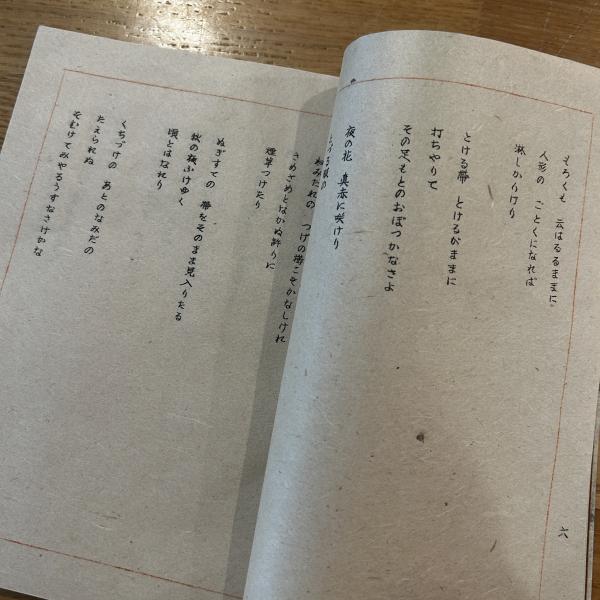 もろくも 云はるるままに
人形の ごとくになれば
淋しかりけり
とける帯 とけるがままに
打ちやりて
その足もとのおぼつかなさよ
夜の花 真赤に咲けり
ねみだれの つげの櫛こそかなしけれ
さめざめとなかぬ許りに
煙草つけたり
ぬぎすての 帯をそのまま見入りたる
秋の夜ふけゆく
頃とはなれり
くちづけの あとのなみだの
たえられぬ
そむけてみやるうすなさけかな
六